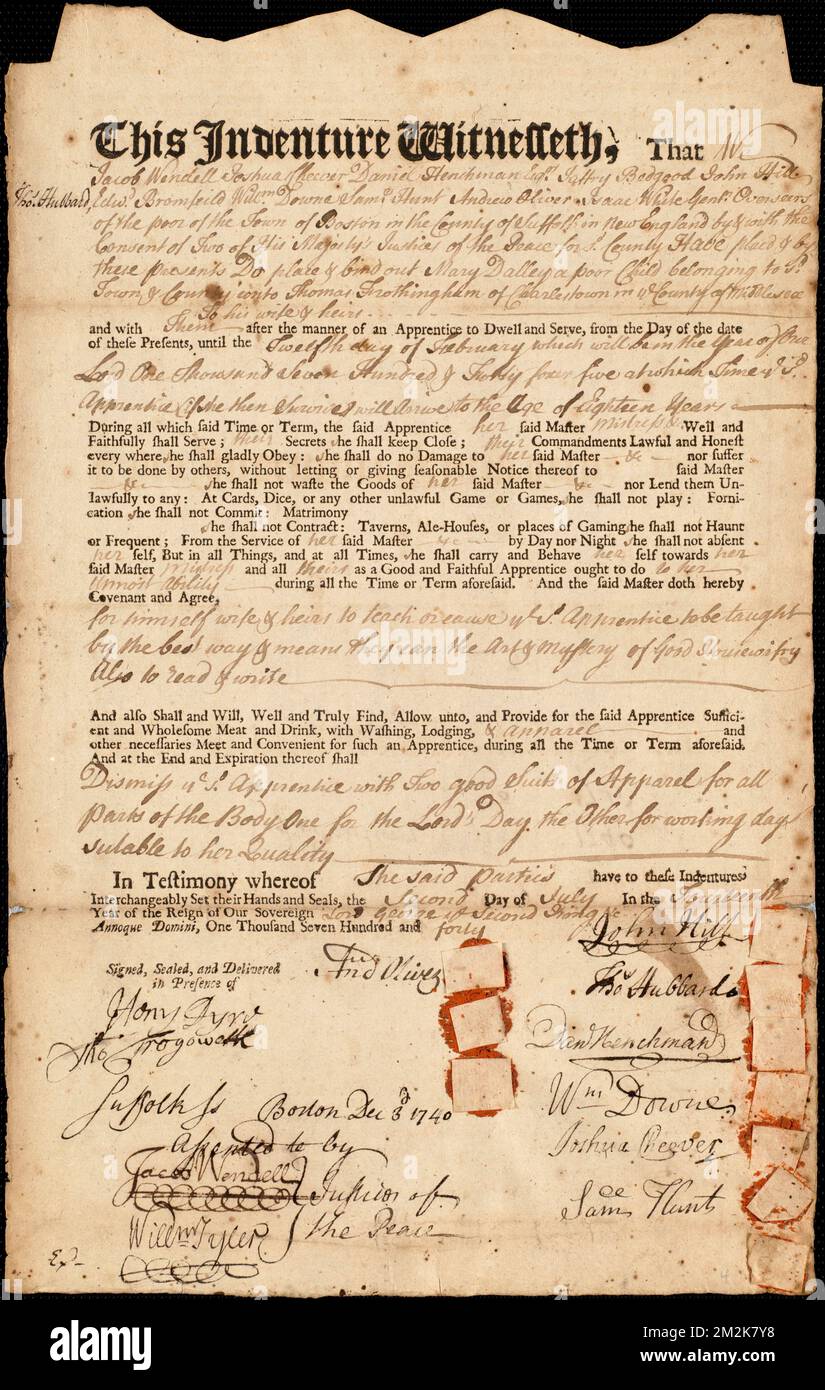 This Indenture Witnesseth, That We
Jacob Wendell Joshua Cheever Daniel Henchman Esqrs Jeffry Bedgood John Hill
Tho. Hubbard, Edwd Bromfeild Willm Downe Saml Hunt Andrew Oliver & Isaac White Gent. Overseers
of the poor of the Town of Boston in the County of Suffolk in New England by & with the
Consent of Two of His Majesty's Justices of the Peace for sd County Have placed & by
these presents Do place & bind out Mary Dalley a poor Child belonging to sd
Town & County unto Thomas Frothingham of Charlestown in ye County of Middlesex
To his wife & heirs
and with Them after the manner of an Apprentice to Dwell and Serve, from the Day of the date
of these Presents, until the Twelfth day of February which will be in the Year of Our
Lord One Thousand Seven Hundred & Forty four five at which Time ye sd
Apprentice if she then Survives will arrive to the Age of Eighteen Years
During all which said Time or Term, the said Apprentice her said Master Mistress &c Well and
Faithfully shall Serve; their Secrets she shall keep Close; their Commandments Lawful and Honest
every where, she shall gladly Obey: she shall do no Damage to her said Master &c nor suffer
it to be done by others, without letting or giving seasonable Notice thereof to said Master
&c she shall not waste the Goods of her said Master &c nor Lend them Un-
lawfully to any: At Cards, Dice, or any other unlawful Game or Games, she shall not play: Forni-
cation she shall not Commit: Matrimony
she shall not Contract: Taverns, Ale-Houses, or places of Gaming she shall not Haunt
or Frequent; From the Service of her said Master &c by Day nor Night she shall not absent
her self, But in all Things, and at all Times, she shall carry and Behave her self towards her
said Master Mistress and all theirs as a Good and Faithful Apprentice ought to do to her
Utmost ability during all the Time or Term aforesaid. And the said Master doth hereby
Covenant and Agree,
for himself wife & heirs to teach or cause ye sd Apprentice to be taught
by the best way & means they can the Art & Mystery of Good Housewifry
Also to read & write
And also Shall and Will, Well and Truly Find, Allow unto, and Provide for the said Apprentice Suffici-
ent and Wholesome Meat and Drink, with Washing, Lodging, & apparel and
other necessaries Meet and Convenient for such an Apprentice, during all the Time or Term aforesaid.
And at the End and Expiration thereof shall
Dismiss ye sd Apprentice with Two good Suits of Apparel for all
Parts of the Body One for the Lord's Day the Other for working days
sutable to her Quality
In Testimony whereof The said Parties have to these Indentures
Interchangeably Set their Hands and Seals, the Second Day of July In the
Year of the Reign of Our Sovereign Lord George ye Second King &c
Annoque Domini, One Thousand Seven Hundred and forty
John Hill
Signed, Sealed, and Delivered
in Presence of
And Oliver
Tho. Hubbard
Dan Henchman
Suffolk ss Boston Dec 3d 1740
Wm Downe
Assented to by
Joshua Cheever
Jacob Wendell
Justices of
Sam Hunt
Willm Tyler
the Peace
alamy
Image ID: 2M2K7Y8
www.alamy.com